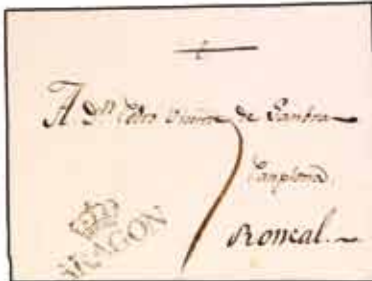 A. Dⁿ Pedro de Gambra
Pamplona
Roncal.
ARAGON